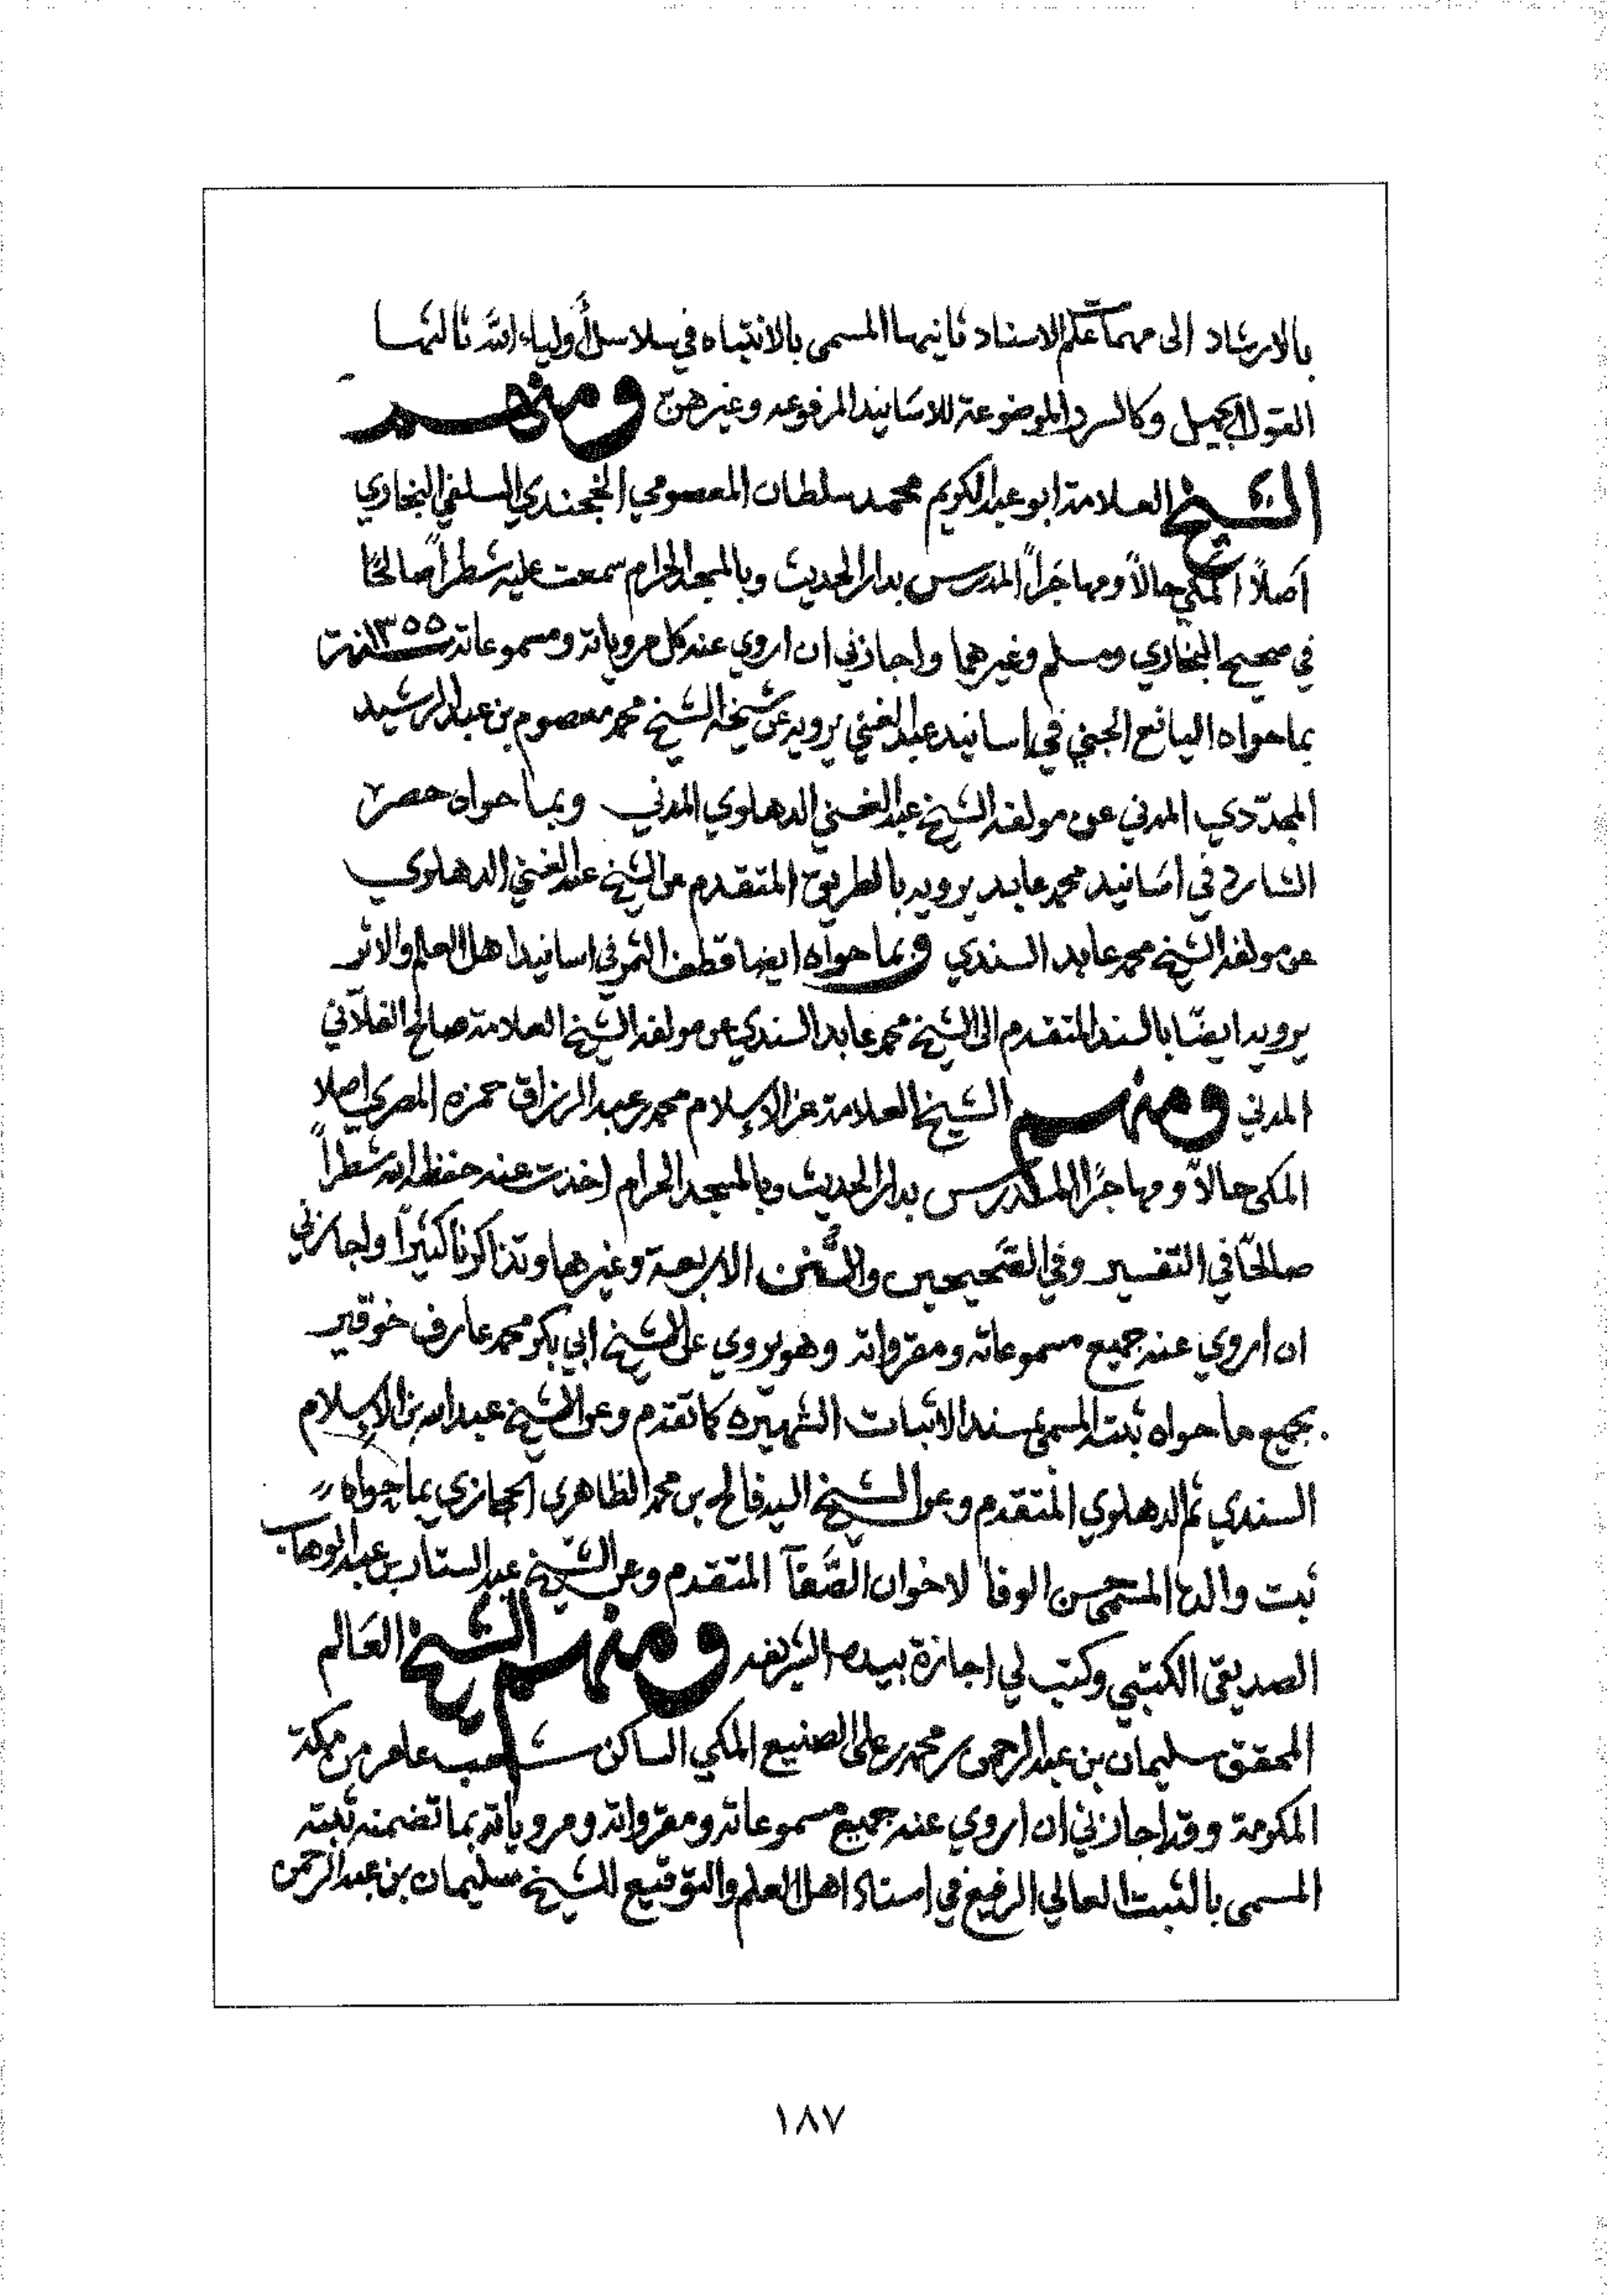 بالارشاد الى مهمات علم الاسناد ثانيها المسمى بالانتباه في سلاسل أولياء الله ثالثها
القول الجميل وكالسرد الموضوعة للاسانيد المرفوعه وغيرهن ومنهم
الشيخ العلامة ابو عبد الكريم محمد سلطان المعصومي الخجندي السلفي البخاري
أصلاً المكي حالاً ومهاجراً المدرس بدار الحديث وبالمسجد الحرام سمعت عليه شطراً صالحًا
في صحيح البخاري ومسلم وغيرهما واجازني ان اروي عنه كل مروياته ومسموعاته ١٣٥٥ سنة
بما حواه اليانع الجني في اسانيد عبد الغني يرويه عن شيخه الشيخ محمد معصوم بن عبد الرشيد
المجدّدي المدني عن مولفه الشيخ عبد الغني الدهلوي المدني وبما حواه حصر
الشارد في اسَانيد محمد عابد يرويه بالطريق المتقدم عن الشيخ عبد الغني الدهلوي
عن مولفه الشيخ محمد عابد السندي وبما حواه ايضا قطف الثمر في اسانيد اهل العلم والاثر
يرويه ايضًا بالسند المتقدم الى الشيخ محمد عابد السندي عن مولفه الشيخ العلامة صالح الفلآني
المدني ومنهم الشيخ العلامة عز الإسلام محمد بن عبد الرزاق حمزه المصري اصلا
المكي حالاً ومهاجرًا المدرس بدار الحديث وبالمسجد الحرام اخذت عنه حفظه الله شطراً
صالحًا في التفسير وفي الصَّحيحين والسُّنن الاربعة وغيرها وتذاكرنا كثيراً واجازني
ان اروي عنه جميع مسموعاته ومقرواته وهو يروي عن الشيخ ابي بكر محمد عارف خوقير
بجميع ما حواه ثبته المسمى مسند الاثبات الشهيره كما تقدم وعن الشيخ عبد الله بن الإسلام
السندي ثم الدهلوي المتقدم وعن الشيخ السيد فالح بن محمد الظاهري الحجازي بما حواه
ثبت والده المسمى حسن الوفا لاخوان الصَّفآ المتقدم وعن الشيخ عبد الستار بن عبد الوهاب
الصديقي الكتبي وكتب لي اجازة بيده الشريفه ومنهم الشيخ العَالم
المحقق سليمان بن عبد الرحمن بن محمد بن علي الصنيع المكي الساكن شعب عامر من مكة
المكرمة وقد اجازني ان اروي عنه جميع مسموعاته ومقرواته ومروياته بما تضمنه ثبته
المسمى بالثبت العالي الرفيع في اسناد اهل العلم والتوقيع للشيخ سليمان بن عبد الرحمن
١٨٧